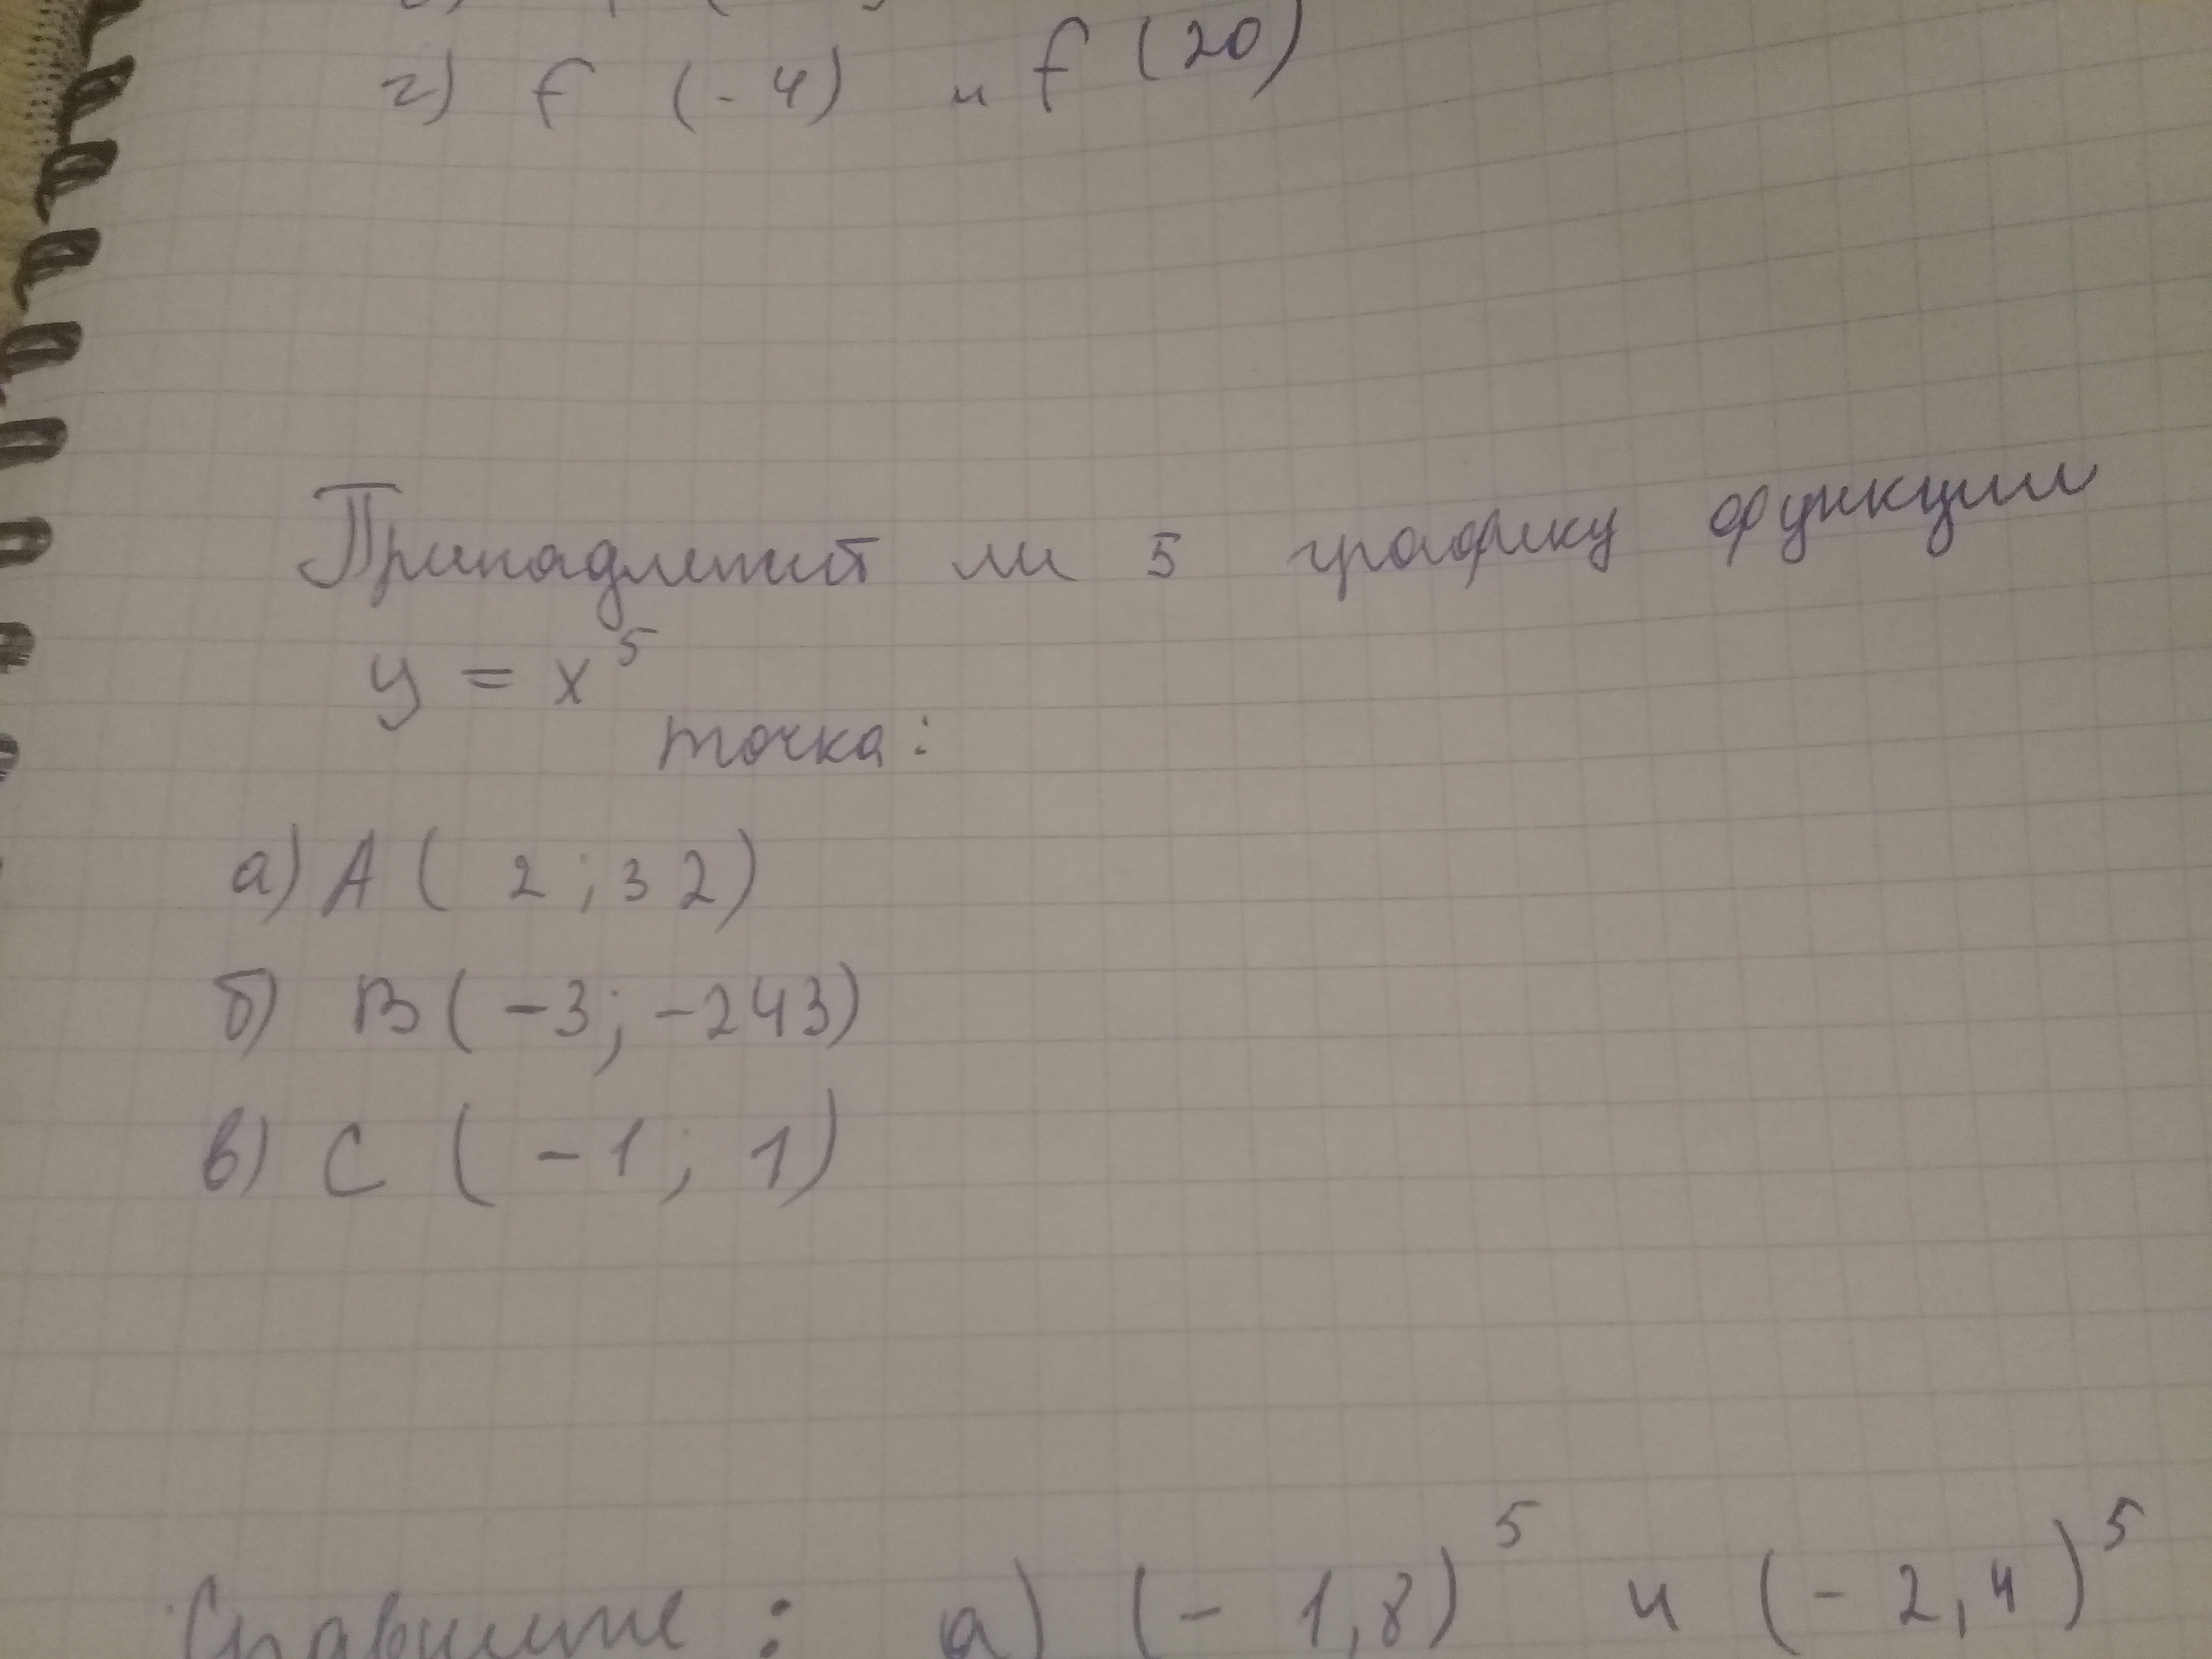 г) f (-4) и f (20)
Принадлежит ли 5 графику функции
y = x⁵
точка:
а) A ( 2 ; 3 2)
б) B ( -3; -243)
в) C ( -1 ; 1)
Сравните : а) (- 1,8)⁵ и (- 2,4)⁵